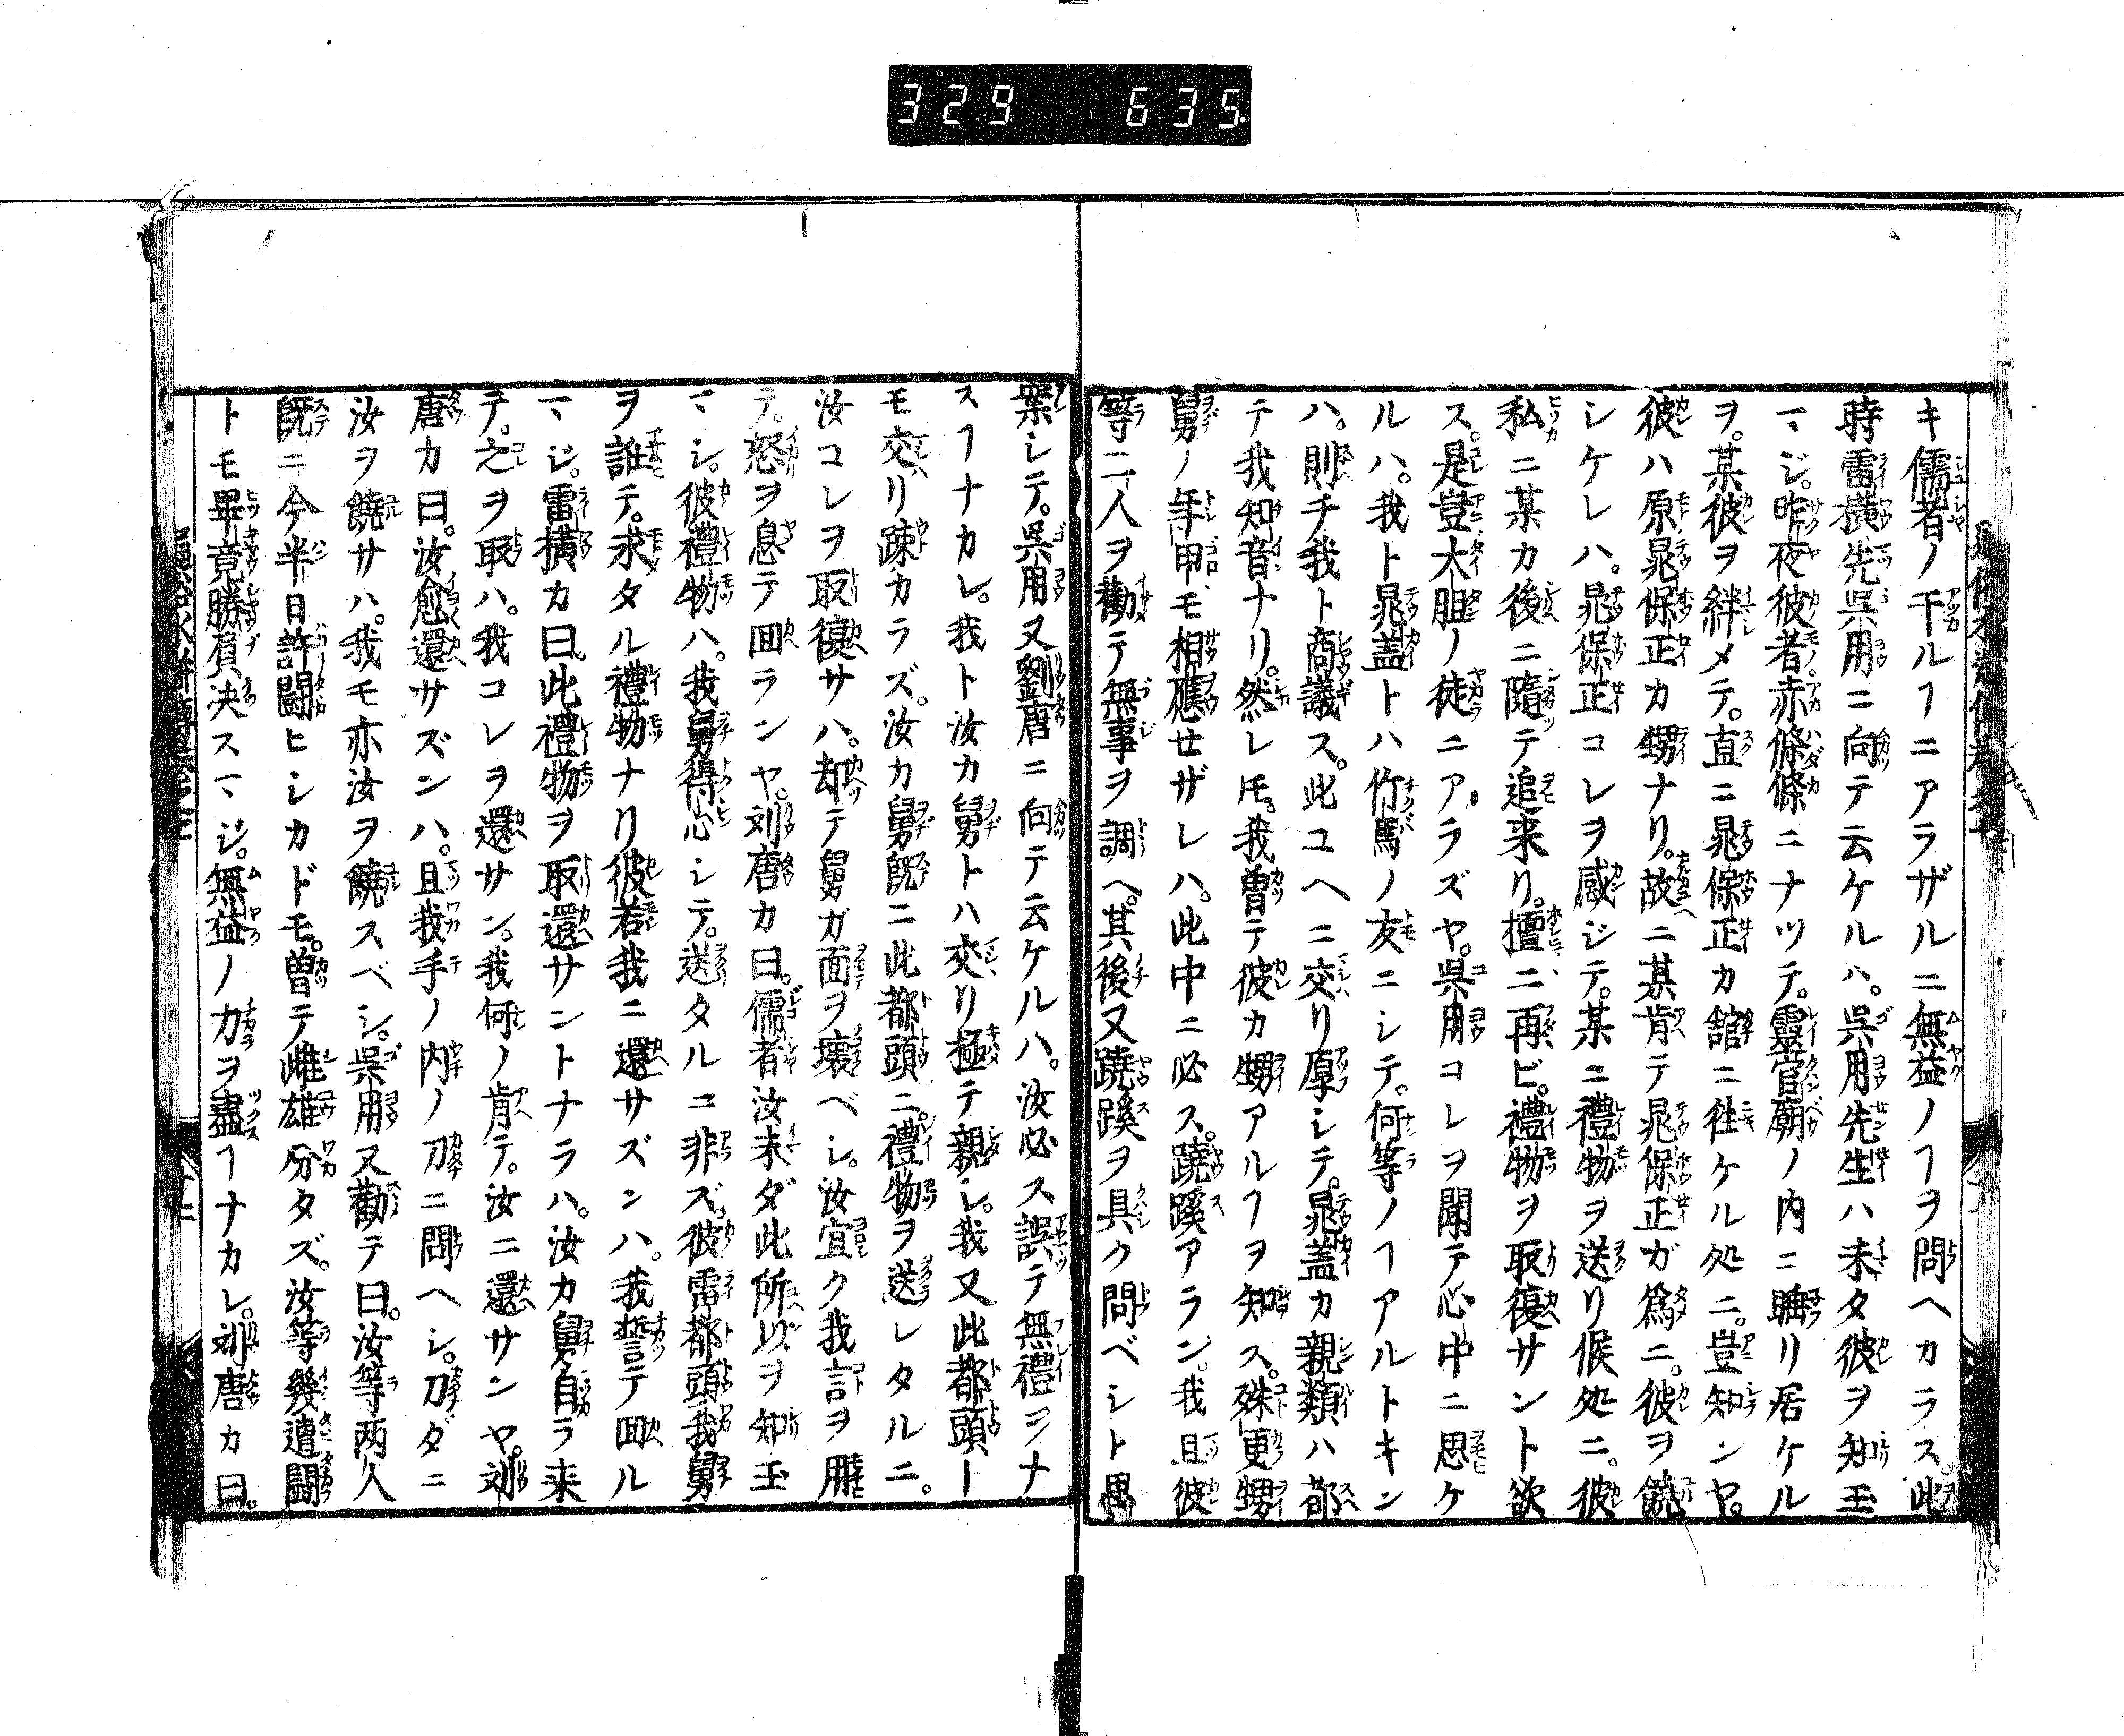 329 635
キ儒者ノ干ルヿニアラザルニ無益ノヿヲ問ヘカラス此
時雷横先呉用ニ向テ云ケルハ。呉用先生ハ未タ彼ヲ知玉
ヽジ。昨夜彼者赤條條ニナツテ。靈官廟ノ内ニ睡リ居ケル
ヲ。某彼ヲ絆メテ。直ニ晁保正カ舘ニ徃ケル処ニ。豈知ンヤ。
彼ハ原晁保正カ甥ナリ。故ニ某肯テ晁保正ガ爲ニ。彼ヲ饒
シケレハ。晁保正コレヲ感ジテ。某ニ禮物ヲ送リ候処ニ。彼
私ニ某カ後ニ隨テ追来リ。擅ニ再ビ。禮物ヲ取復サント欲
ス。是豈大胆ノ徒ニアラズヤ。呉用コレヲ聞テ心中ニ思ケ
ルハ。我ト晁盖トハ竹馬ノ友ニシテ。何等ノヿアルトキン
ハ。則チ我ト商議ス。此ユヘニ交リ厚シテ。晁盖カ親類ハ都
テ我知音ナリ。然レ𪜈。我曽テ彼カ甥アルヿヲ知ス。殊更甥
舅ノ年甲モ相應セザレハ。此中ニ必ス。蹺蹊アラン。我且彼
等二人ヲ勸テ無事ヲ調ヘ。其後又蹺蹊ヲ具ク問ベシト思
案シテ。呉用又劉唐ニ向テ云ケルハ。汝必ス誤テ無禮ヲナ
スヿナカレ。我ト汝カ舅トハ交リ極テ親シ。我又此都頭ト
モ交リ疎カラズ。汝カ舅既ニ此都頭ニ。禮物ヲ送レタルニ。
汝コレヲ取復サハ。却テ舅ガ面ヲ壞ベシ。汝宜ク我言ヲ用
テ。怒ヲ息テ回ランヤ。刘唐カ曰。儒者汝未ダ此所以ヲ知玉
ヽシ。彼禮物ハ。我舅得心シテ。送タルニ非ズ。彼雷都頭我舅
ヲ誰テ。求タル禮物ナリ彼若我ニ還サズンハ。我誓テ回ル
ヽジ。雷横カ曰。此禮物ヲ取還サントナラハ。汝カ舅自ラ来
テ。之ヲ取ハ。我コレヲ還サン。我何ノ肯テ。汝ニ還サンヤ。刘
唐カ曰。汝愈還サズンハ。且我手ノ内ノ刀ニ問ヘシ。刀ダニ
汝ヲ饒サハ。我モ亦汝ヲ饒スベシ。呉用又勸テ曰。汝等两人
既ニ今半日許闘ヒシカドモ。曽テ雌雄分タズ。汝等幾遭闘
トモ畢竟勝負决スヽジ。無益ノ力ヲ盡ヿナカレ。刘唐カ曰。